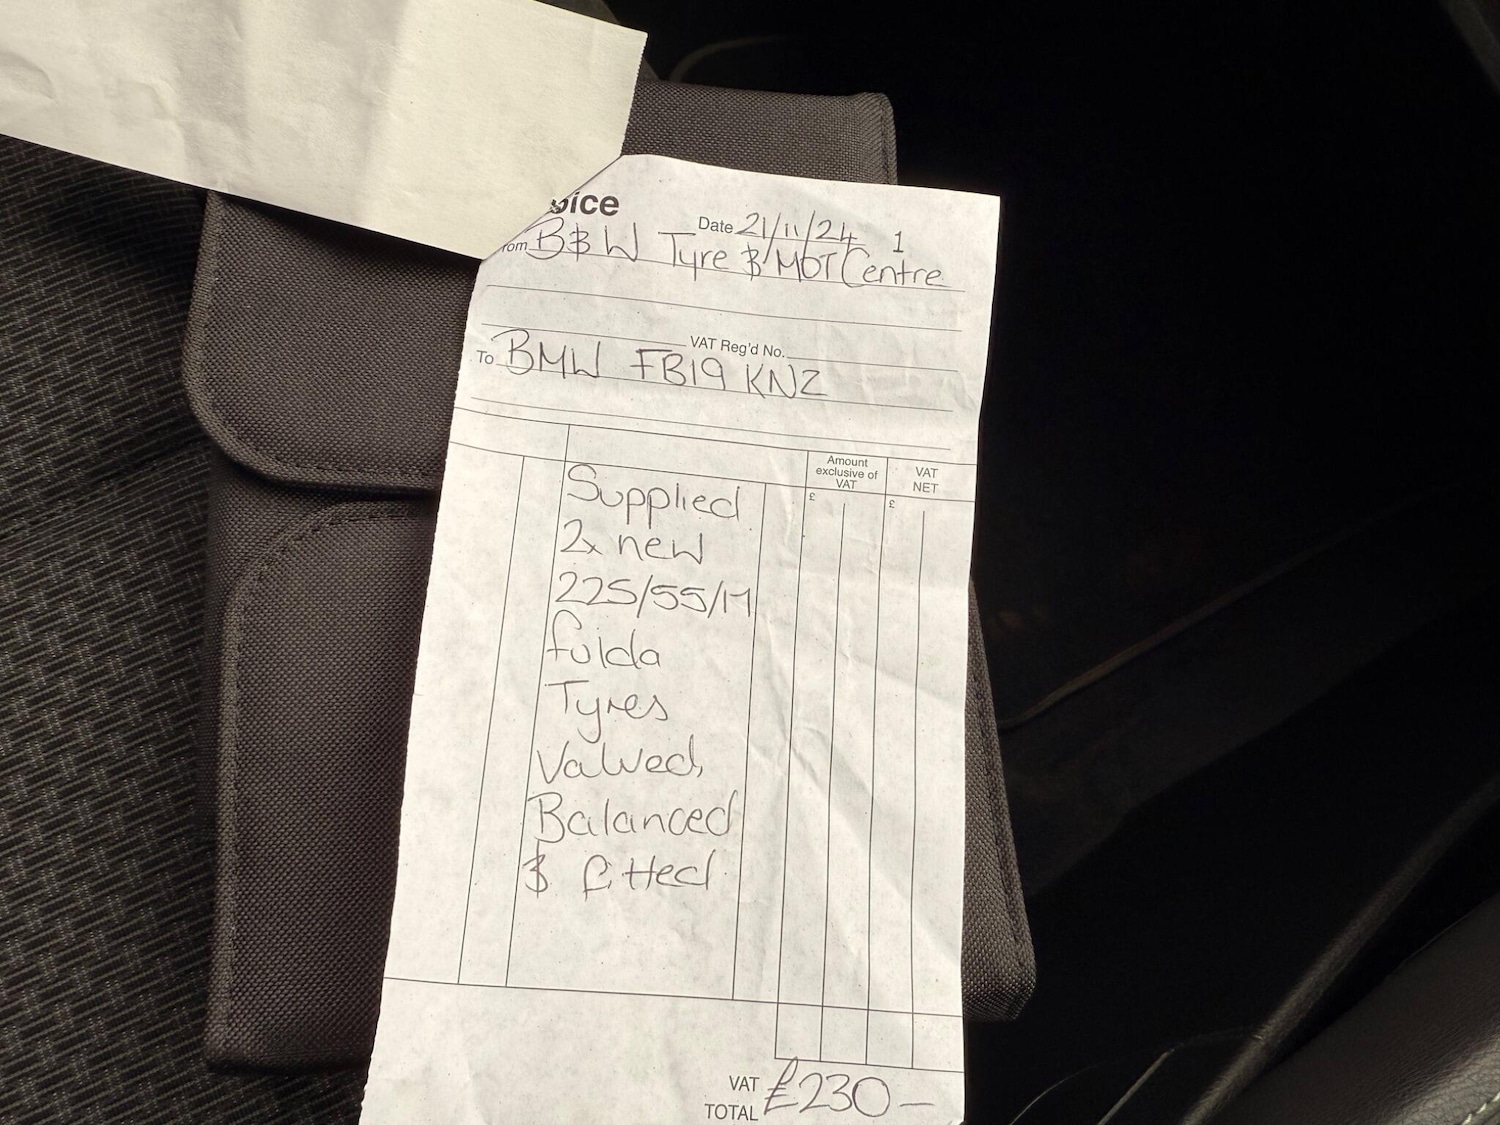 oice
Date 21/11/24 1
rom B&W Tyre & MOT Centre
VAT Reg'd No.
To BMW FB19 KNZ
Amount exclusive of VAT
VAT NET
£ £
Supplied
2x new
225/55/17
fulda
Tyres
Valved,
Balanced
& fitted
VAT
TOTAL £230 —